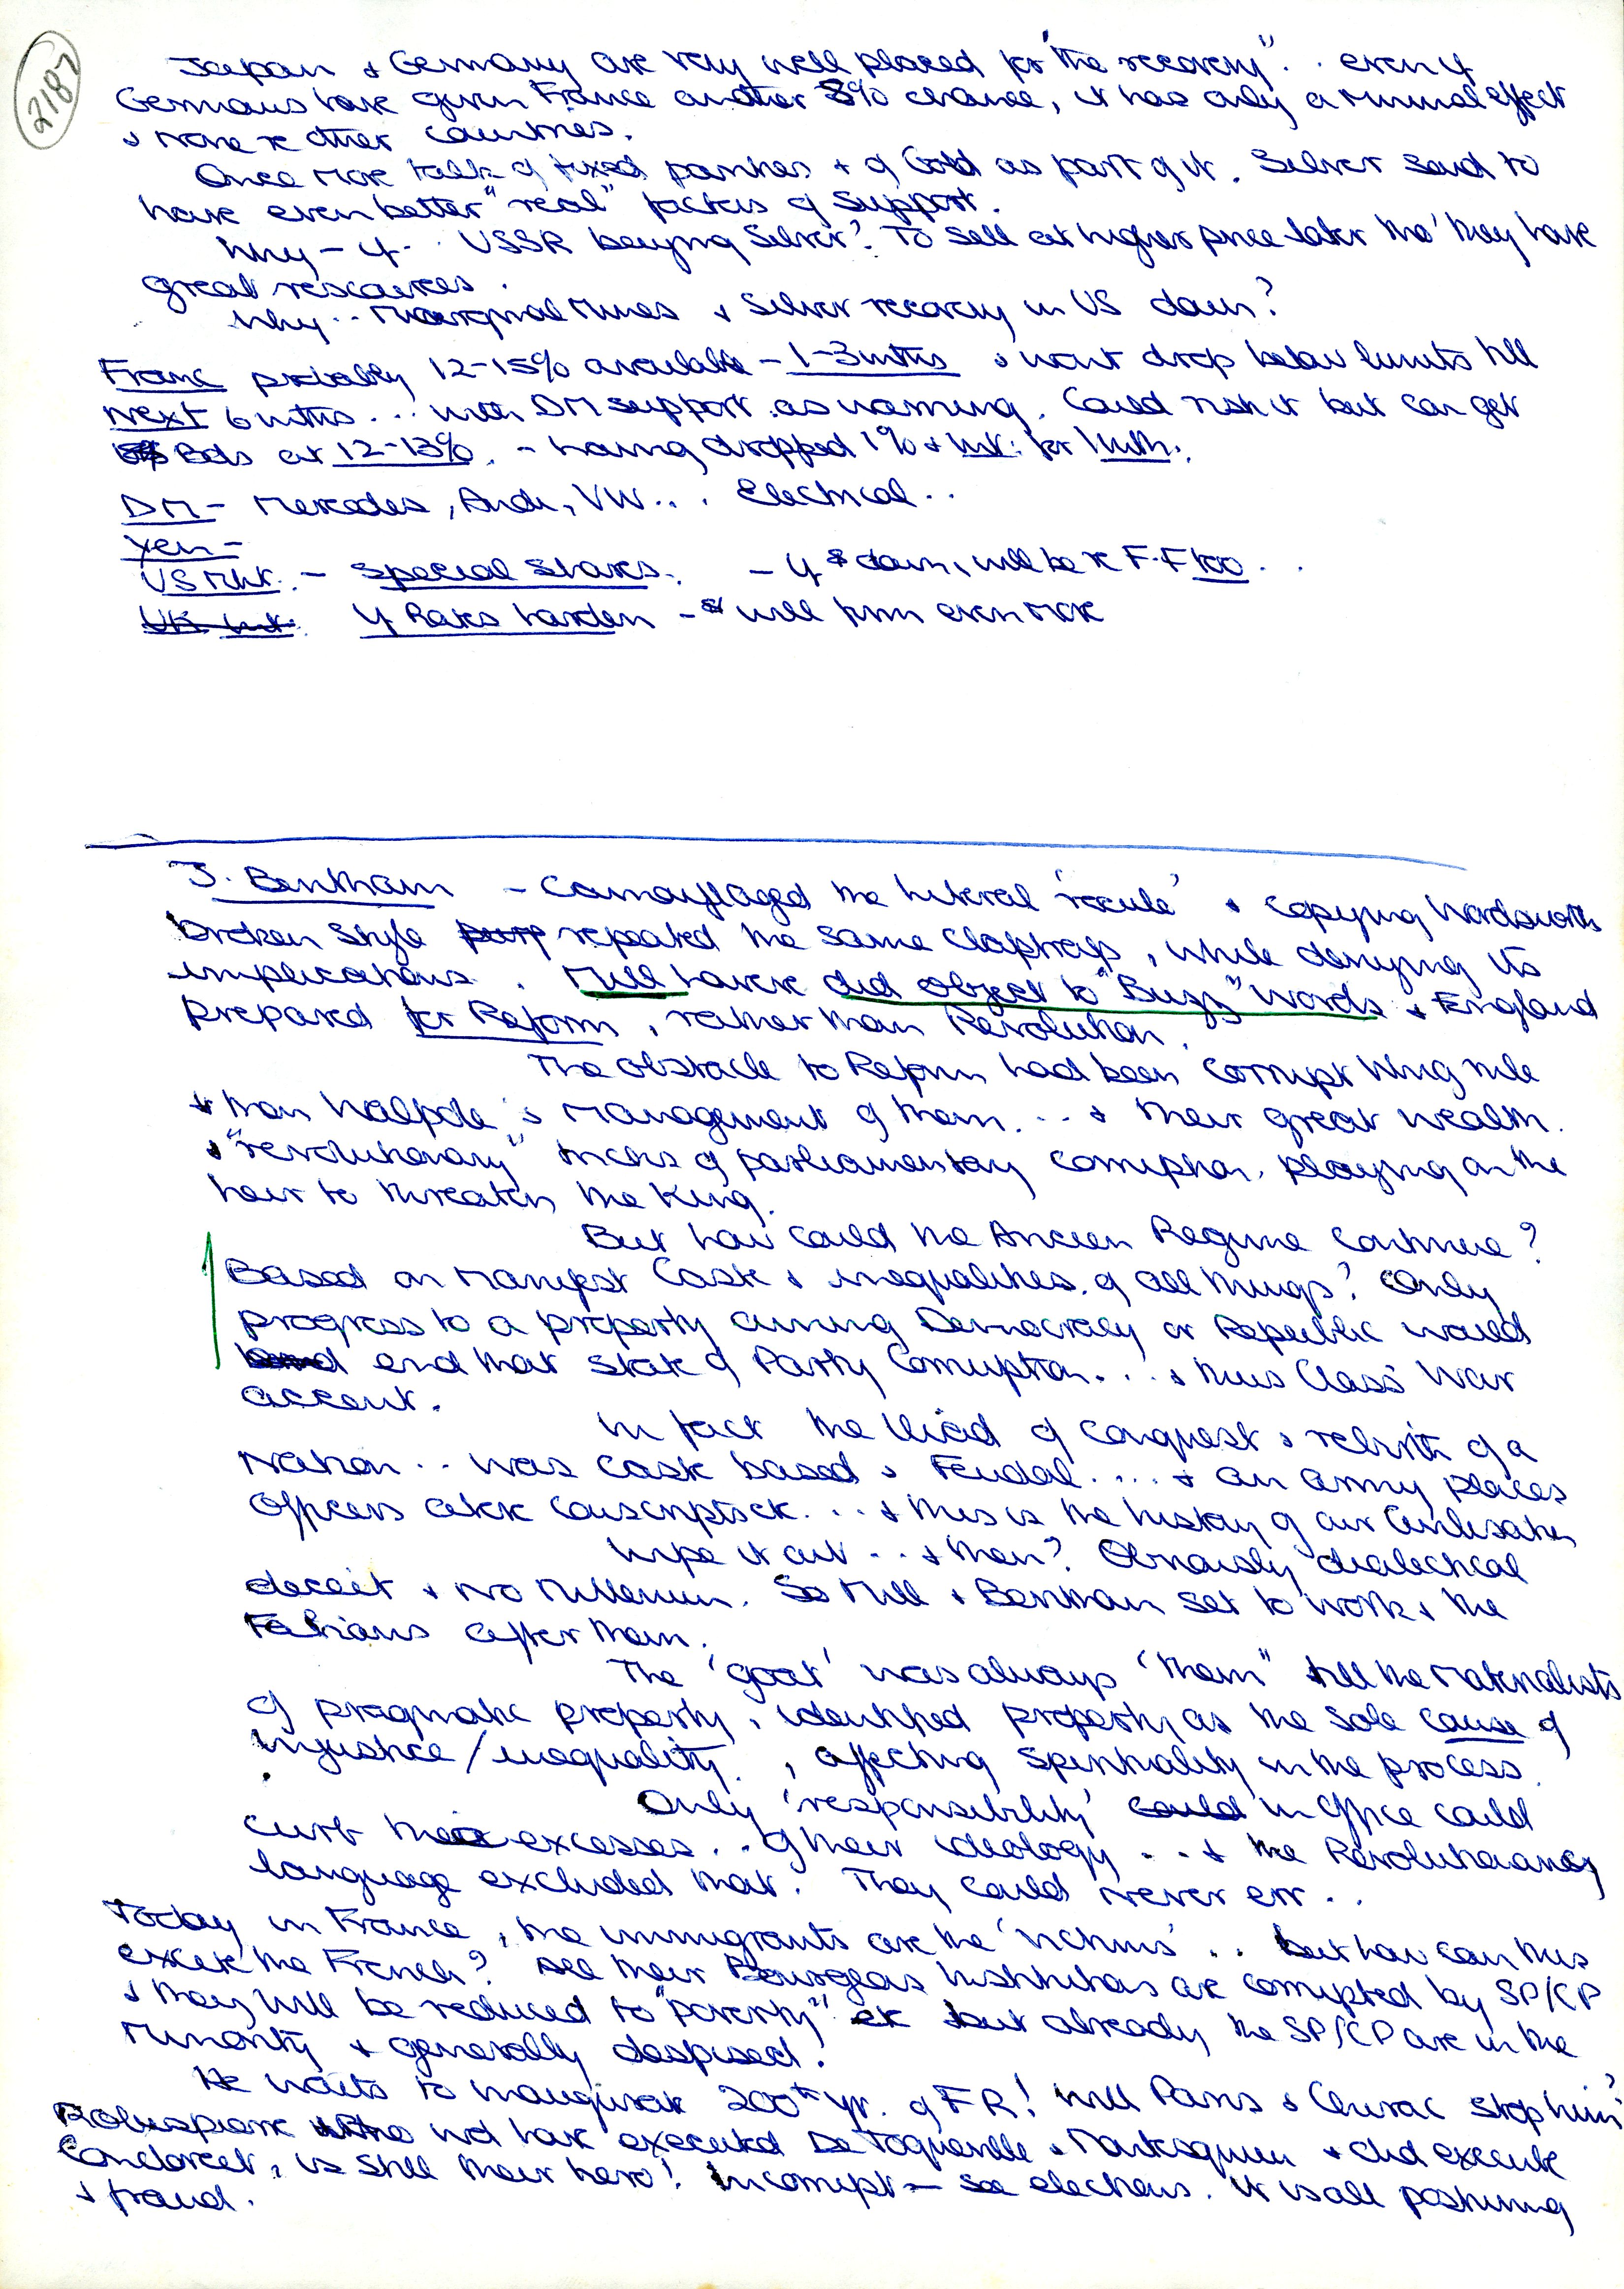 2187
Japan & Germany are very well placed for "the recovery" .. even if
Germans have given France another 3% chance, it has only a minimal effect
& none re other countries.
Once more talk of fixed parities & of Gold as part of it. Silver said to
have even better "real" factors of support.
Why - if .. USSR buying Silver? To sell at higher price later tho' they have
great resources.
Why .. Marginal Mines & Silver recovery in US down?
Franc probably 12-15% available - 1-3 mths & wont drop below limits till
Next 6 mths ... with DM support as warning. Could risk it but can get
Bds at 12-13%. - having dropped 1% & Int: for 1 mth.
DM - Mercedes, Audi, VW ... Electrical ..
Yen -
US Mkt. - Special Shares. - if $ down, will be re F.F too ..
UK Mkt: If Rates harden - $ will firm even more
J. Bentham - Camouflaged the literal & copying Wordsworth
broken style repeated the same claptraps, while denying its
implications. Mill however did object to "Buzz" words & England
prepared for Reform, rather than Revolution.
The obstacle to Reform had been corrupt Whig rule
& then Walpole's management of them ... & their great wealth.
& "revolutionary" tricks of parliamentary corruption, playing on the
heir to threaten the King.
But how could the Ancien Regime continue?
Based on Manifest Caste & inequalities of all things? Only
progress to a property owning Democracy or Republic would
end that state of Party Corruption ... & thus Class War
accent.
In fact the of conquest & rebirth of a
Nation .. was caste based & Feudal .... & an army places
Officers conscripts ... & this is the history of our Civilisation
Wipe it out ... & then? Obviously dialectical
deceit & no Millenium. So Mill & Bentham set to work & the
Fabians after them.
The 'goat' was always 'them" till the Materialists
of pragmatic property, identified property as the sole cause of
injustice/inequality, affecting spirituality in the process.
Only 'responsibility' could in Office could
curb their excesses .. of their ideology ... & the Revolutionary
language excluded that. They could never err ..
Today in France, the immigrants are the 'victims' .. but how can this
excite the French? All their Bourgeois Institutions are corrupted by SP/CP
& they will be reduced to "poverty" etc but already the SP/CP are in the
minority & generally despised!
He waits to inaugurate 200th yr. of F R! Will Paris & Chirac stop him?
Robespierre who wd have executed De Toqueville & Montesquieu & did execute
Condorcet, is still their hero! Incorrupt - see elections. It is all posturing
& fraud.